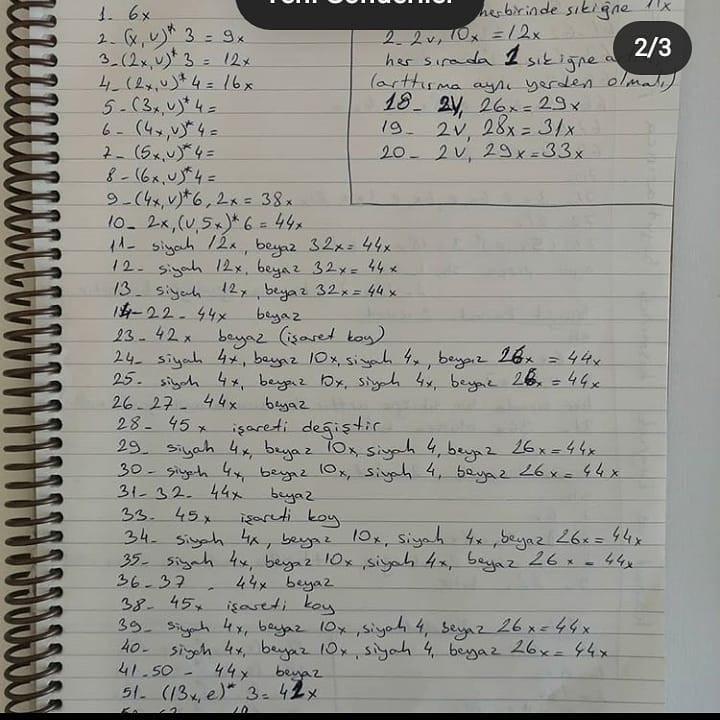 Yeni Gönderiler
2/3
1- 6x
2- (x,v)* 3 = 9x
3- (2x,v)* 3 = 12x
4- (2x,v)* 4 = 16x
5- (3x,v)* 4 =
6- (4x,v)* 4 =
7- (5x,v)* 4 =
8- (6x,v)* 4 =
9- (4x,v)* 6, 2x = 38x
10- 2x, (v,5x)* 6 = 44x
11- siyah 12x, beyaz 32x = 44x
12- siyah 12x, beyaz 32x = 44x
13- siyah 12x, beyaz 32x = 44x
14-22- 44x beyaz
23- 42x beyaz (işaret koy)
24- siyah 4x, beyaz 10x, siyah 4x, beyaz 26x = 44x
25- siyah 4x, beyaz 10x, siyah 4x, beyaz 26x = 44x
26-27- 44x beyaz
28- 45x işareti değiştir
29- siyah 4x, beyaz 10x, siyah 4, beyaz 26x = 44x
30- siyah 4x, beyaz 10x, siyah 4, beyaz 26x = 44x
31-32- 44x beyaz
33- 45x işareti koy
34- siyah 4x, beyaz 10x, siyah 4x, beyaz 26x = 44x
35- siyah 4x, beyaz 10x, siyah 4x, beyaz 26x = 44x
36-37- 44x beyaz
38- 45x işareti koy
39- siyah 4x, beyaz 10x, siyah 4, beyaz 26x = 44x
40- siyah 4x, beyaz 10x, siyah 4, beyaz 26x = 44x
41-50- 44x beyaz
51- (13x,e)* 3 = 42x
herbirinde sıkiğne 11x
2- 2v, 10x = 12x
her sırada 1 sıkiğne
(arttırma aynı yerden olmalı)
18- 2v, 26x = 29x
19- 2v, 28x = 31x
20- 2v, 29x = 33x